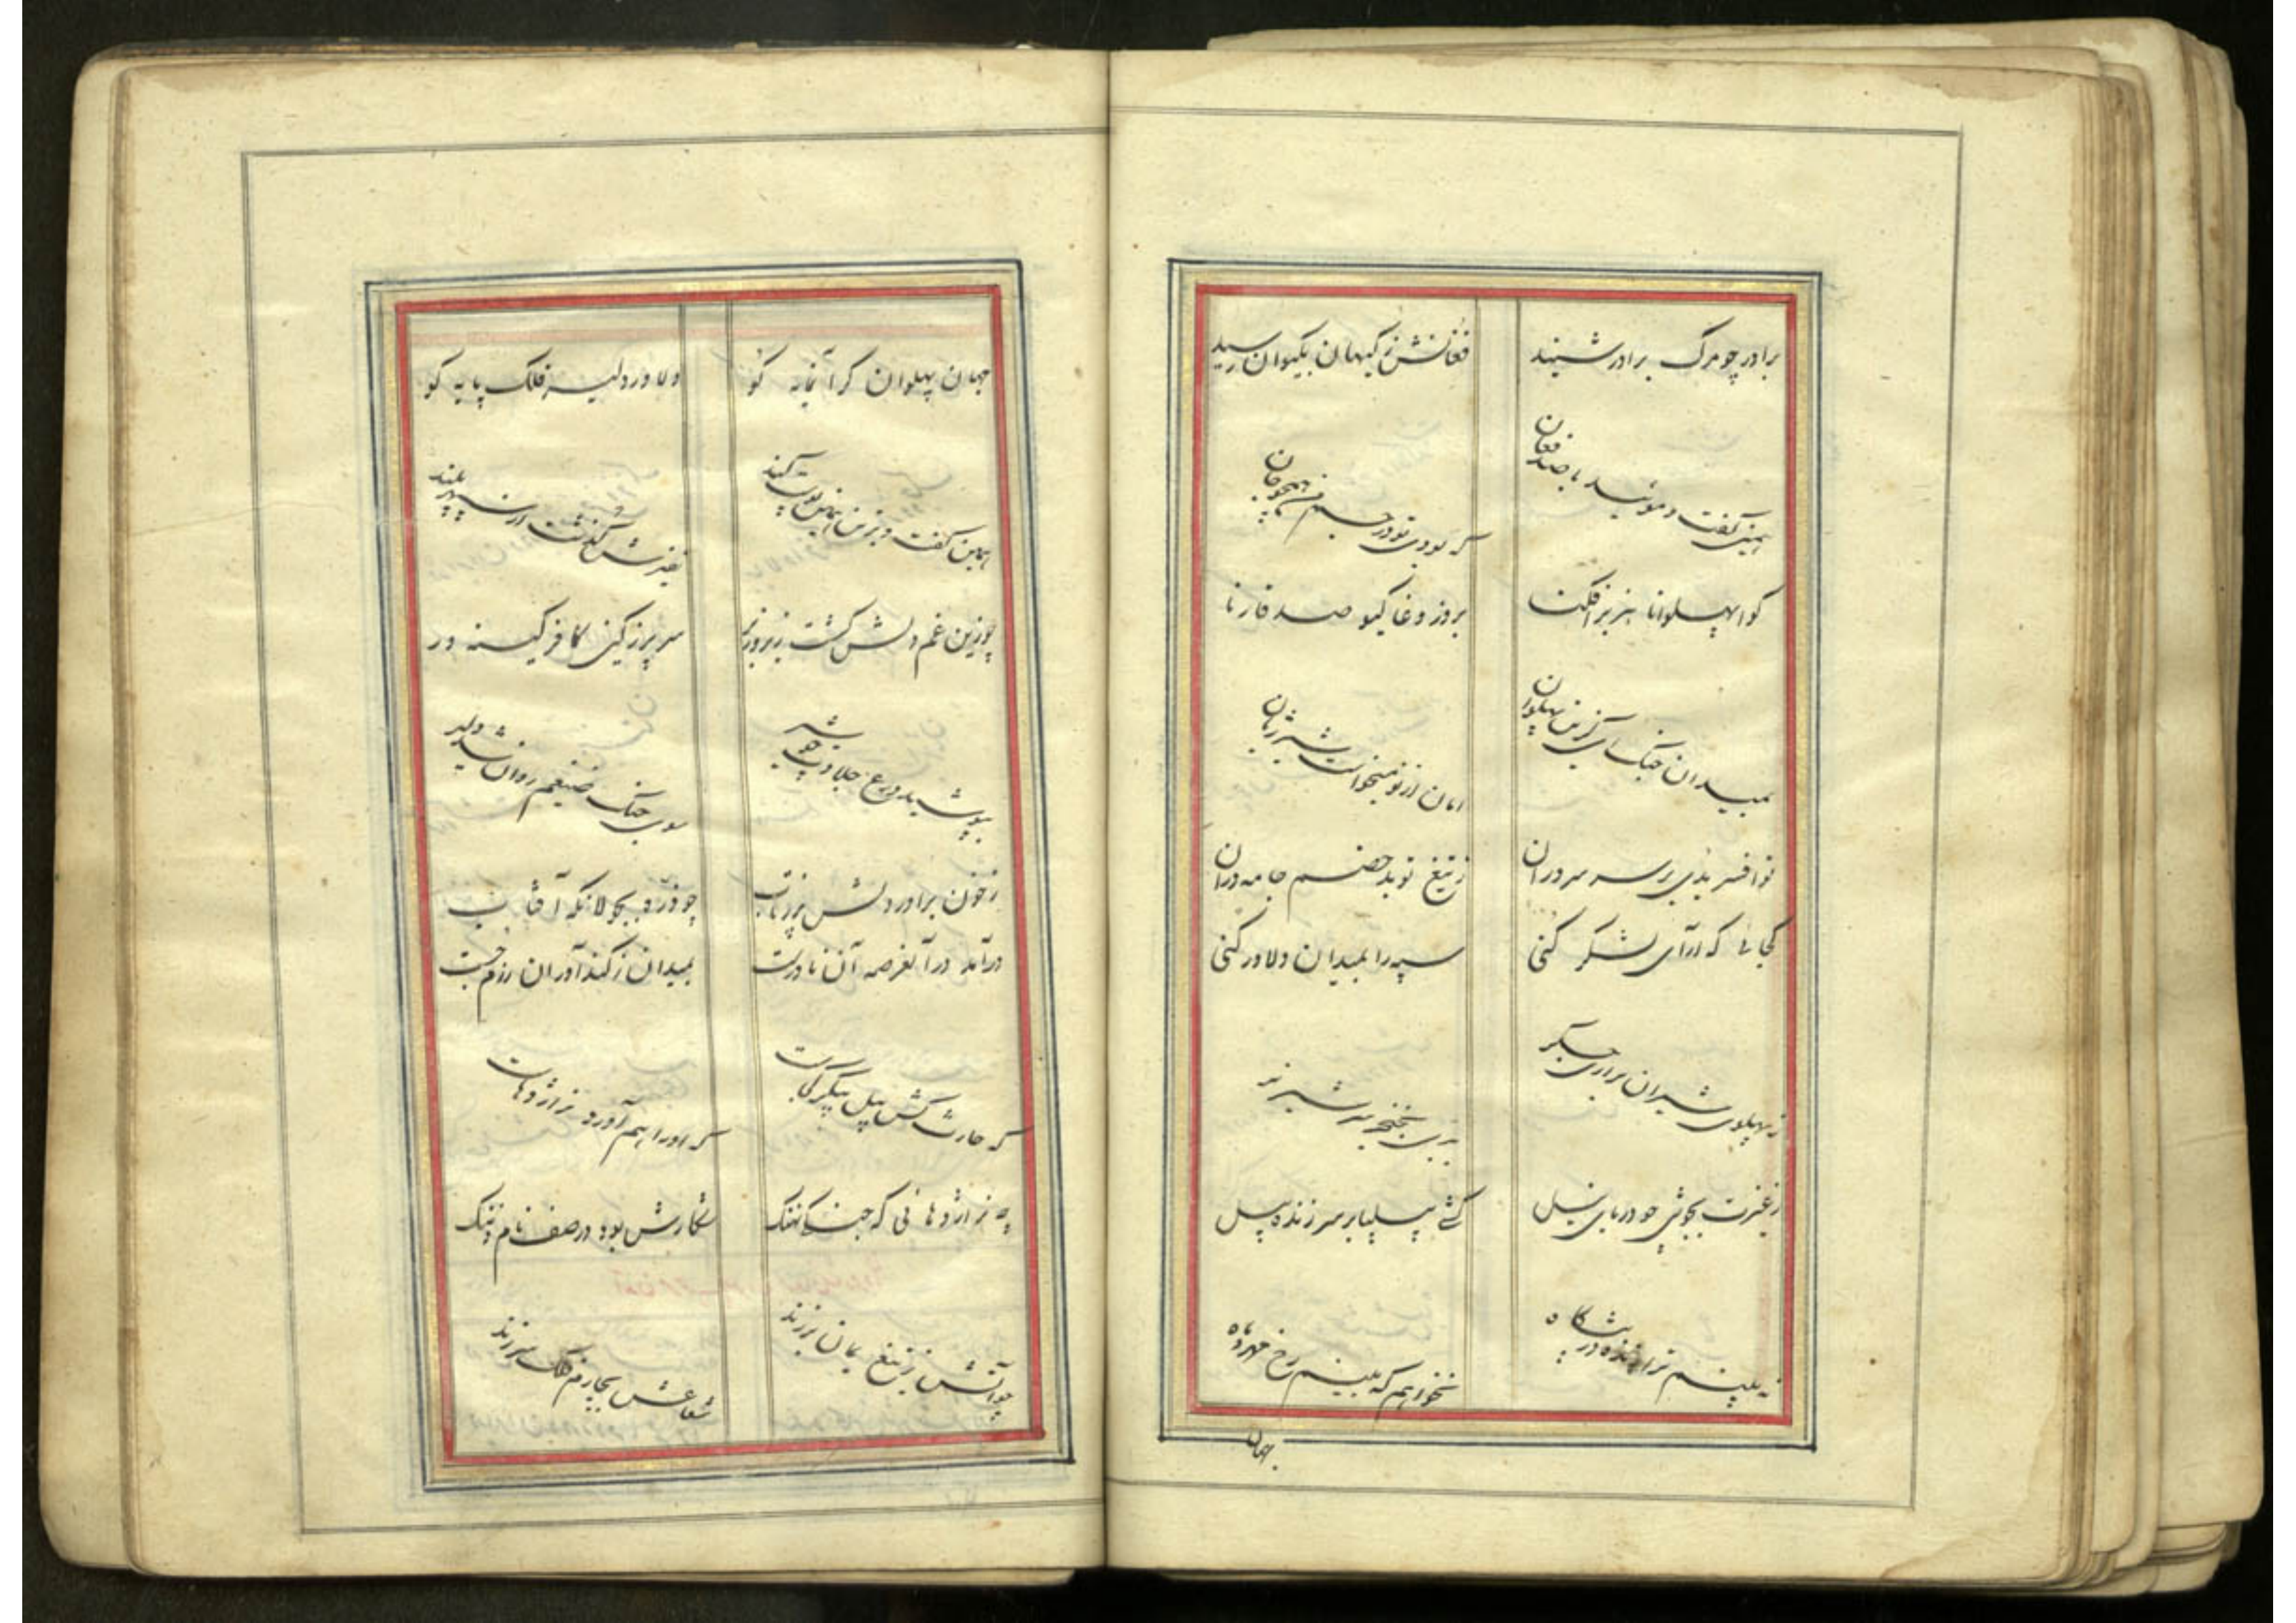 برادر چو مرگ برادر شنید
فغانش ز کیهان بکیوان رسید
همی گفت و مویید با صد فغان
که بودی تو در جسم من همچو جان
گوا پهلوانا هزبر افکنا
بروز وغا گیو صد قارنا
بمیدان جنگ ای گزین پهلوان
امان از تو میخواست شیر ژیان
تو افسر بدی بر سر سروران
ز تیغ تو بد خصم جامه دران
کجائی که آرای لشکر کنی
سپه را بمیدان دلاور کنی
ز پهلوی شیران براری جگر
بخنجر سر شیر نر
ز غیرت بجوشی چو دریای نیل
کشی پیلپا بر سر زنده پیل
نه بینم ترا زنده در پیشگاه
نخواهم که بینم رخ مهر و ماه
جهان
جهان پهلوان گرانمایه کو
دلاور دلیر فلک پایه کو
همین گفت و بر تن همین پوست کند
نفیرش گذشت از سپهر بلند
چو زین غم دلش گشت زیر و زبر
سر پر ز کین کافر کینه ور
بپوشید درع جلادت چو شیر
سوی جنگ ضیغم روان شد دلیر
ز خون برادر دلش پر ز تاب
چو ذره بجولانگه آفتاب
درآمد در آنعرصه آن نادرست
بمیدان ز کندآوران رزم جست
که حارث کش پیل پیکر کجاست
که او را بهم آورد نر اژدهاست
چه نر اژدهائی که جنگی نهنگ
شکارش بود در صف نام و ننگ
چو آتش ز تیغ یمان برزند
شعاعش بچارم فلک سر زند